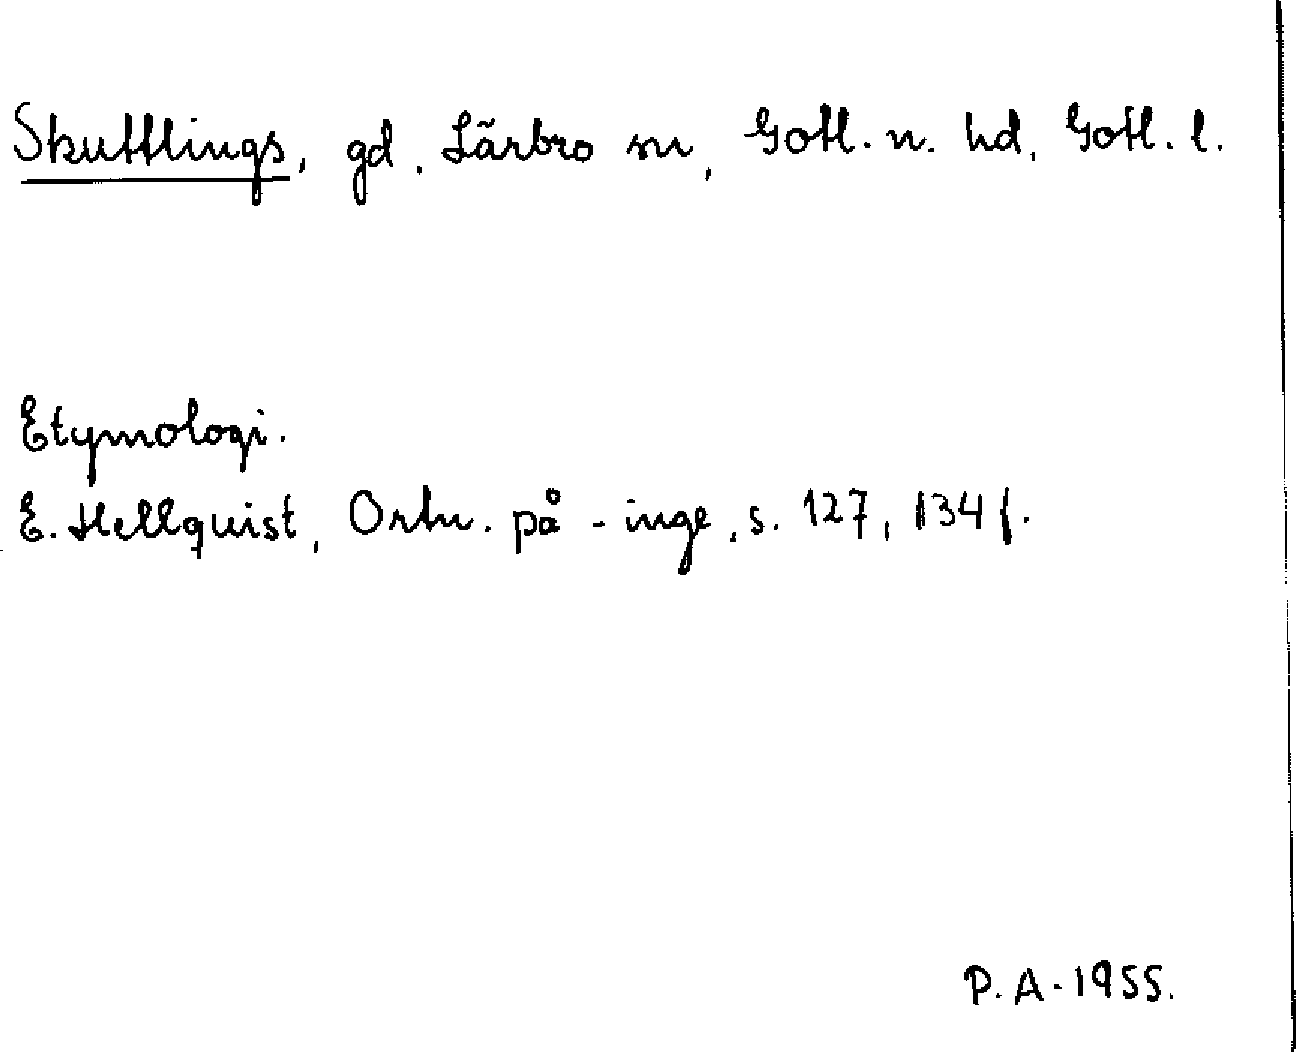 Skuttlings, gd, Lärbro sn, Gotl. n. hd, Gotl. l.
Etymologi.
E. Hellquist, Ortn. på -inge, s. 127, 134 f.
P. A. 1955.